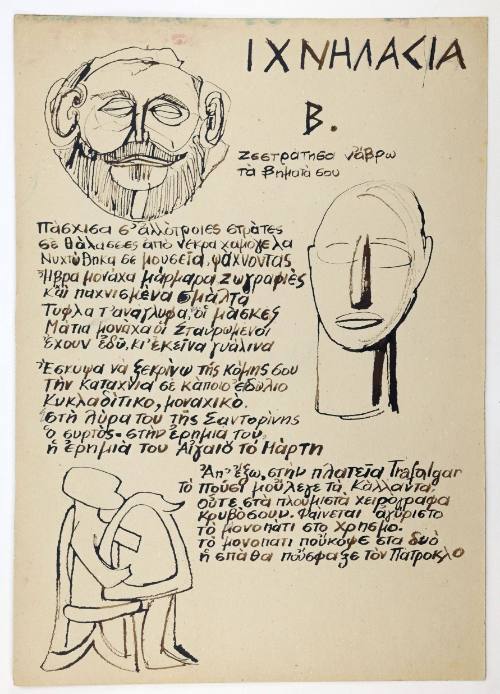 ΙΧΝΗΛΑΣΙΑ
Β.
Ξεστράτησα νἄβρω
τὰ βήματά σου
Πάσχισα σ' ἀλλότροιες στράτες
σὲ θάλασσες ἀπὸ νεκρὰ χαμόγελα
Νυχτώθηκα σὲ μουσεῖα, ψάχνοντας
Ἦβρα μονάχα μάρμαρα ζωγραφιὲς
καὶ παχνισμένα σμάλτα
Τυφλὰ τ' ἀνάγλυφα, οἱ μάσκες
Μάτια μονάχα οἱ Σταυρωμένοι
ἔχουν ἐδῶ, κι' ἐκεῖνα γυάλινα
Ἔσκυψα νὰ ξεκρίνω τῆς κόμης σου
Τὴν καταχνιὰ σὲ κάποιο εἰδώλιο
Κυκλαδίτικο, μοναχικό.
Στὴ λύρα του τῆς Σαντορίνης
ὁ συρτός - στὴν ἐρημιά του
ἡ ἐρημιὰ τοῦ Αἰγαίο τὸ Νάρτη
Ἀπ' ἔξω, στὴν πλατεῖα Trafalgar
τὸ πούσι μοὔλεγε τὰ Κάλλαντα.
οὔτε στὰ πλουμιστὰ χειρόγραφα
κρυβόσουν. Φαίνεται ἀγύριστο
τὸ μονοπάτι στὸ χρησμό.
τὸ μονοπάτι ποὔκοψε στὰ δυὸ
ἡ σπάθα ποὔσφαξε τὸν Πάτροκλο